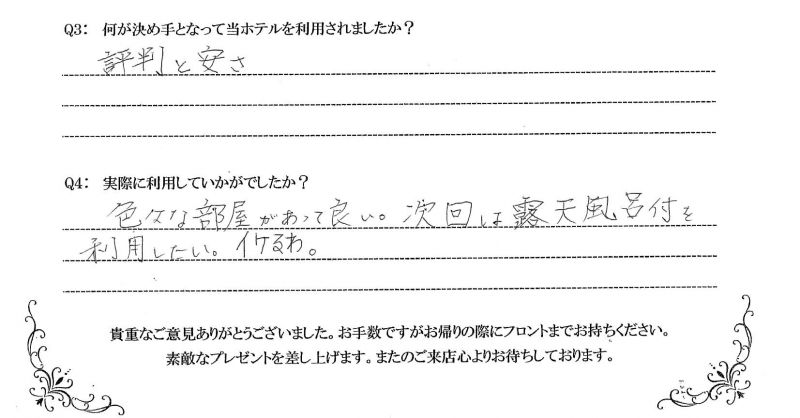 Q3： 何が決め手となって当ホテルを利用されましたか？
評判と安さ
Q4： 実際に利用していかがでしたか？
色々な部屋があって良い。次回は露天風呂付を
利用したい。イケるわ。
貴重なご意見ありがとうございました。お手数ですがお帰りの際にフロントまでお持ちください。
素敵なプレゼントを差し上げます。またのご来店心よりお待ちしております。